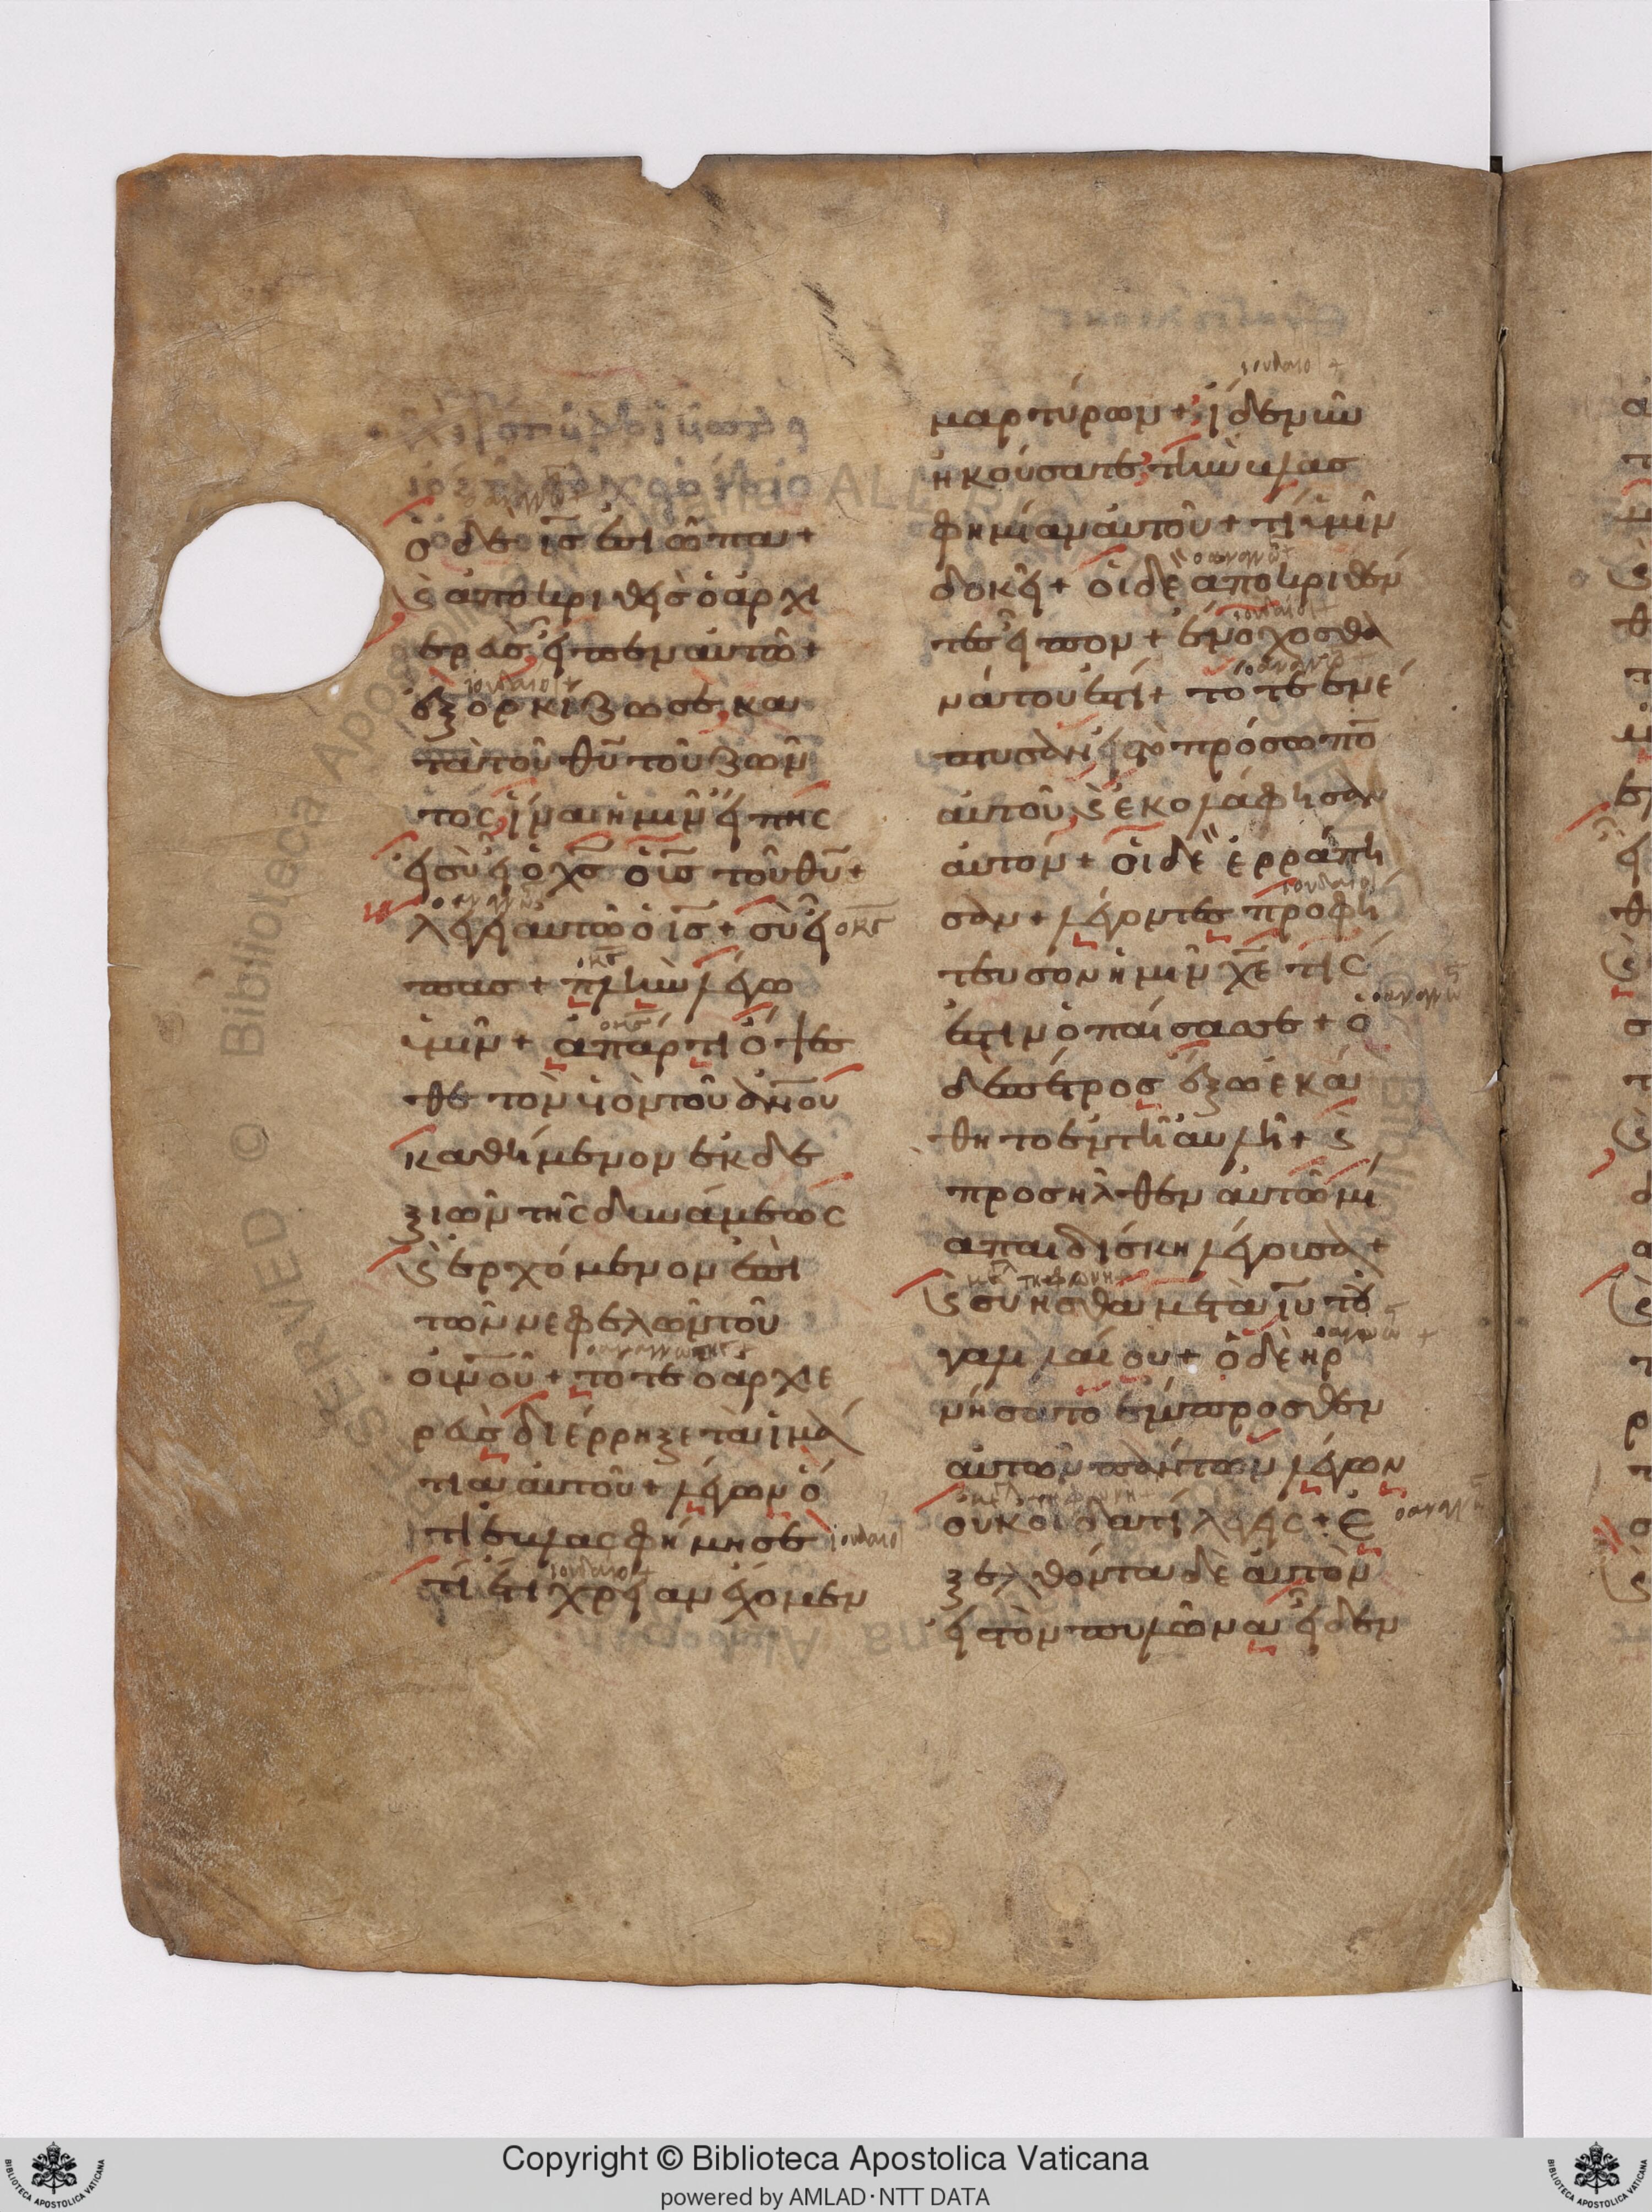 ὁ δὲ ι̅ς̅ ἐσιώπα +
ϛ ἀποκριθεὶς ὁ ἀρχι
ερεὺς εἶπεν αὐτῶ +
ἐξορκίζω σε κα
τὰ τοῦ θ̅υ̅ τοῦ ζῶν
τος, ἵνα ἡμῖν εἴπης
εἰ σὺ εἶ ὁ χ̅ς̅ ὁ υ̅ς̅ τοῦ θ̅υ̅ +
λέγει αὐτῶ ὁ ι̅ς̅ + σὺ εἶ
πας + πλὴν λέγω
ὑμῖν + ἀπάρτι ὄψεσ
θε τὸν υἱὸν τοῦ α̅ν̅ο̅υ̅
καθήμενον ἐκ δε
ξιῶν τῆς δυνάμεως
ϛ ἐρχόμενον ἐπὶ
τῶν νεφελῶν τοῦ
ο̅υ̅ν̅ο̅υ̅ + τότε ὁ ἀρχιε
ρεὺς διέρρηξε τὰ ἱμά
τια αὐτοῦ + λέγων ὅ
τι ἐβλασφήμησε
τί ἔτι χρείαν ἔχομεν
μαρτύρων + ἴδε νῦν
ἠκούσατε τὴν βλασ
φημίαν αὐτοῦ + τί ὑμῖν
δοκεῖ + οἱ δὲ ἀποκριθέν
τες εἶπον + ἔνοχος θα
νάτου ἐστί + τότε ἐνέ
πτυσαν εἰς τὸ πρόσωπο̅
αὐτοῦ, ϛ ἐκολάφησαν
αὐτόν + οἱ δὲ ἐρράπη
σαν + λέγοντες προφή
τευσον ἡμῖν χ̅ε̅ τίς
ἐστιν ὁ παίσας σε + ὁ
δὲ πέτρος ἔξω ἐκά
θητο ἐν τῆ αὐλῆ + ϛ
προσῆλθεν αὐτῶ μί
α παιδίσκη λέγουσα +
ϛ σὺ ἦσθα μετὰ ι̅υ̅ τοῦ
γαλιλαίου + ὁ δὲ ἠρ
νήσατο ἔμπροσθεν
αὐτῶν πάντων λέγων
οὐκ οἶδα τί λέγεις + ἐ
ξελθόντα δὲ αὐτὸν
εἰς τὸν πυλῶνα εἶδεν
Copyright © Biblioteca Apostolica Vaticana
powered by AMLAD·NTT DATA